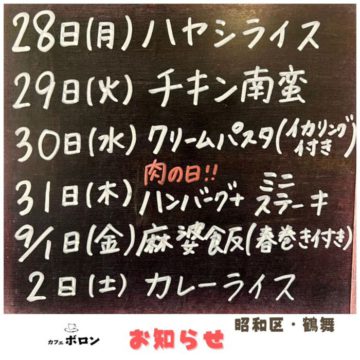 28日(月)ハヤシライス
29日(火)チキン南蛮
30日(水)クリームパスタ(イカリング付き)
肉の日!!
31日(木)ハンバーグ+ミニステーキ
9/1日(金)麻婆飯(春巻き付き)
2日(土)カレーライス
昭和区・鶴舞
カフェ ボロン
お知らせ